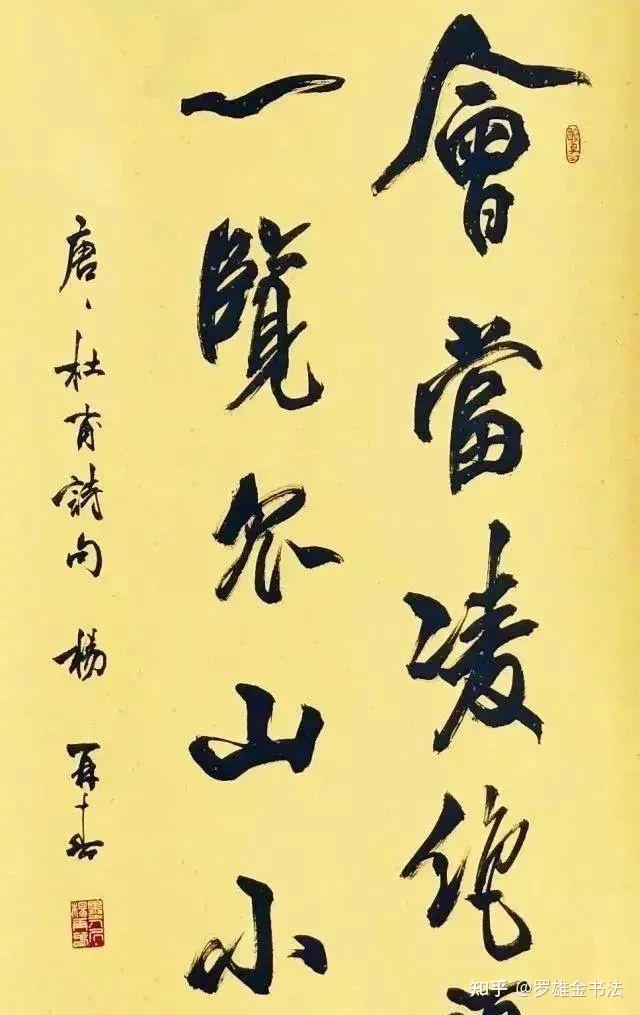 會當凌絕
一覽眾山小
唐、杜甫詩句 楊再春
知乎 @罗雄金书法